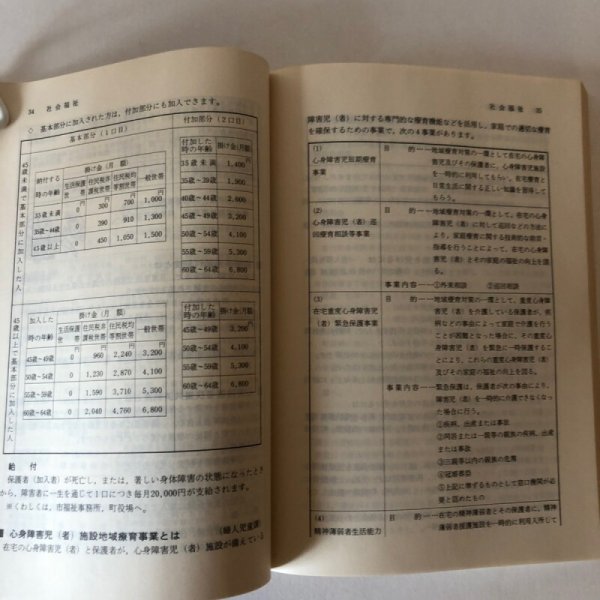 34 社会福祉
◇ 基本部分に加入された方は，付加部分にも加入できます。
基本部分（1口目）
付加部分（2口目）
45歳未満で基本部分に加入した人
給付する時の年齢
掛け金（月 額）
生活保護世帯
住民税非課税世帯
住民税均等割世帯
一般世帯
35歳未満 0円 300円 700円 1,000円
35歳～39歳 0 390 910 1,300
45歳以上 0 450 1,050 1,500
付加した時の年齢
掛け金(月額)
35歳未満 1,400円
35歳～39歳 1,900
40歳～44歳 2,600
45歳～49歳 3,200
50歳～54歳 4,100
55歳～59歳 5,300
60歳～64歳 6,800
45歳以上で基本部分に加入した人
加入した時の年齢
掛け金（月 額）
生活保護世帯
住民税非課税世帯
住民税均等割世帯
一般世帯
45歳～49歳 0 960 2,240 3,200
50歳～54歳 0 1,230 2,870 4,100
55歳～59歳 0 1,590 3,710 5,300
60歳～64歳 0 2,040 4,760 6,800
付加した時の年齢
掛け金(月額)
45歳～49歳 3,200円
50歳～54歳 4,100
55歳～59歳 5,300
60歳～64歳 6,800
給 付
保護者（加入者）が死亡し，または，著しい身体障害の状態になったとき
から，障害者に一生を通じて1口につき毎月20,000円が支給されます。
※くわしくは，市福祉事務所，町役場へ。
心身障害児（者）施設地域療育事業とは （婦人児童課）
在宅の心身障害児（者）と保護者が，心身障害児（者）施設が備えている
社会福祉 35
障害児（者）に対する専門的な療育機能などを活用し，家庭での適切な療育
を確保するための事業で，次の4事業があります。
(1)
心身障害児短期療育
事業
目 的……地域療育対策の一環として在宅の心身障
害児及びその保護者に，心身障害児施設
を一時的に利用してもらい，在宅療育と
日常生活に関する正しい知識を習得して
もらう。
(2)
心身障害児（者）巡
回療育相談等事業
目 的……地域療育対策の一環として，在宅の心身
障害児（者）に対して巡回などの方法に
より，家庭療育に関する技術的な助言・
指導を行うことによって，在宅の心身障
害児（者）とその家庭の福祉の向上を図
る。
事業内容……①外来相談 ②巡回相談
(3)
在宅重度心身障害児
（者）緊急保護事業
目 的……地域療育対策の一環として，重度心身障
害児（者）を介護している保護者が，疾
病などの事由によって家庭で介護を行う
ことが困難となった場合に，その重度心
身障害児（者）を緊急に一時保護するこ
とにより，これらの重度心身障害児（者）
及びその家庭の福祉の向上を図る。
事業内容……緊急保護は，保護者が次の事由により，
障害児（者）を一時的に介護できなくなっ
た場合に行う。
①疾病，出産または事故
②同居または一親等の親族の疾病，出産
または事故
③三親等以内の親族の危篤
④冠婚葬祭
⑤上記に準ずるものとして窓口機関が必
要と認めたもの
(4)
精神薄弱者生活能力
目 的……在宅の精神薄弱者とその保護者に，精神
薄弱者援護施設を一時的に利用入所して